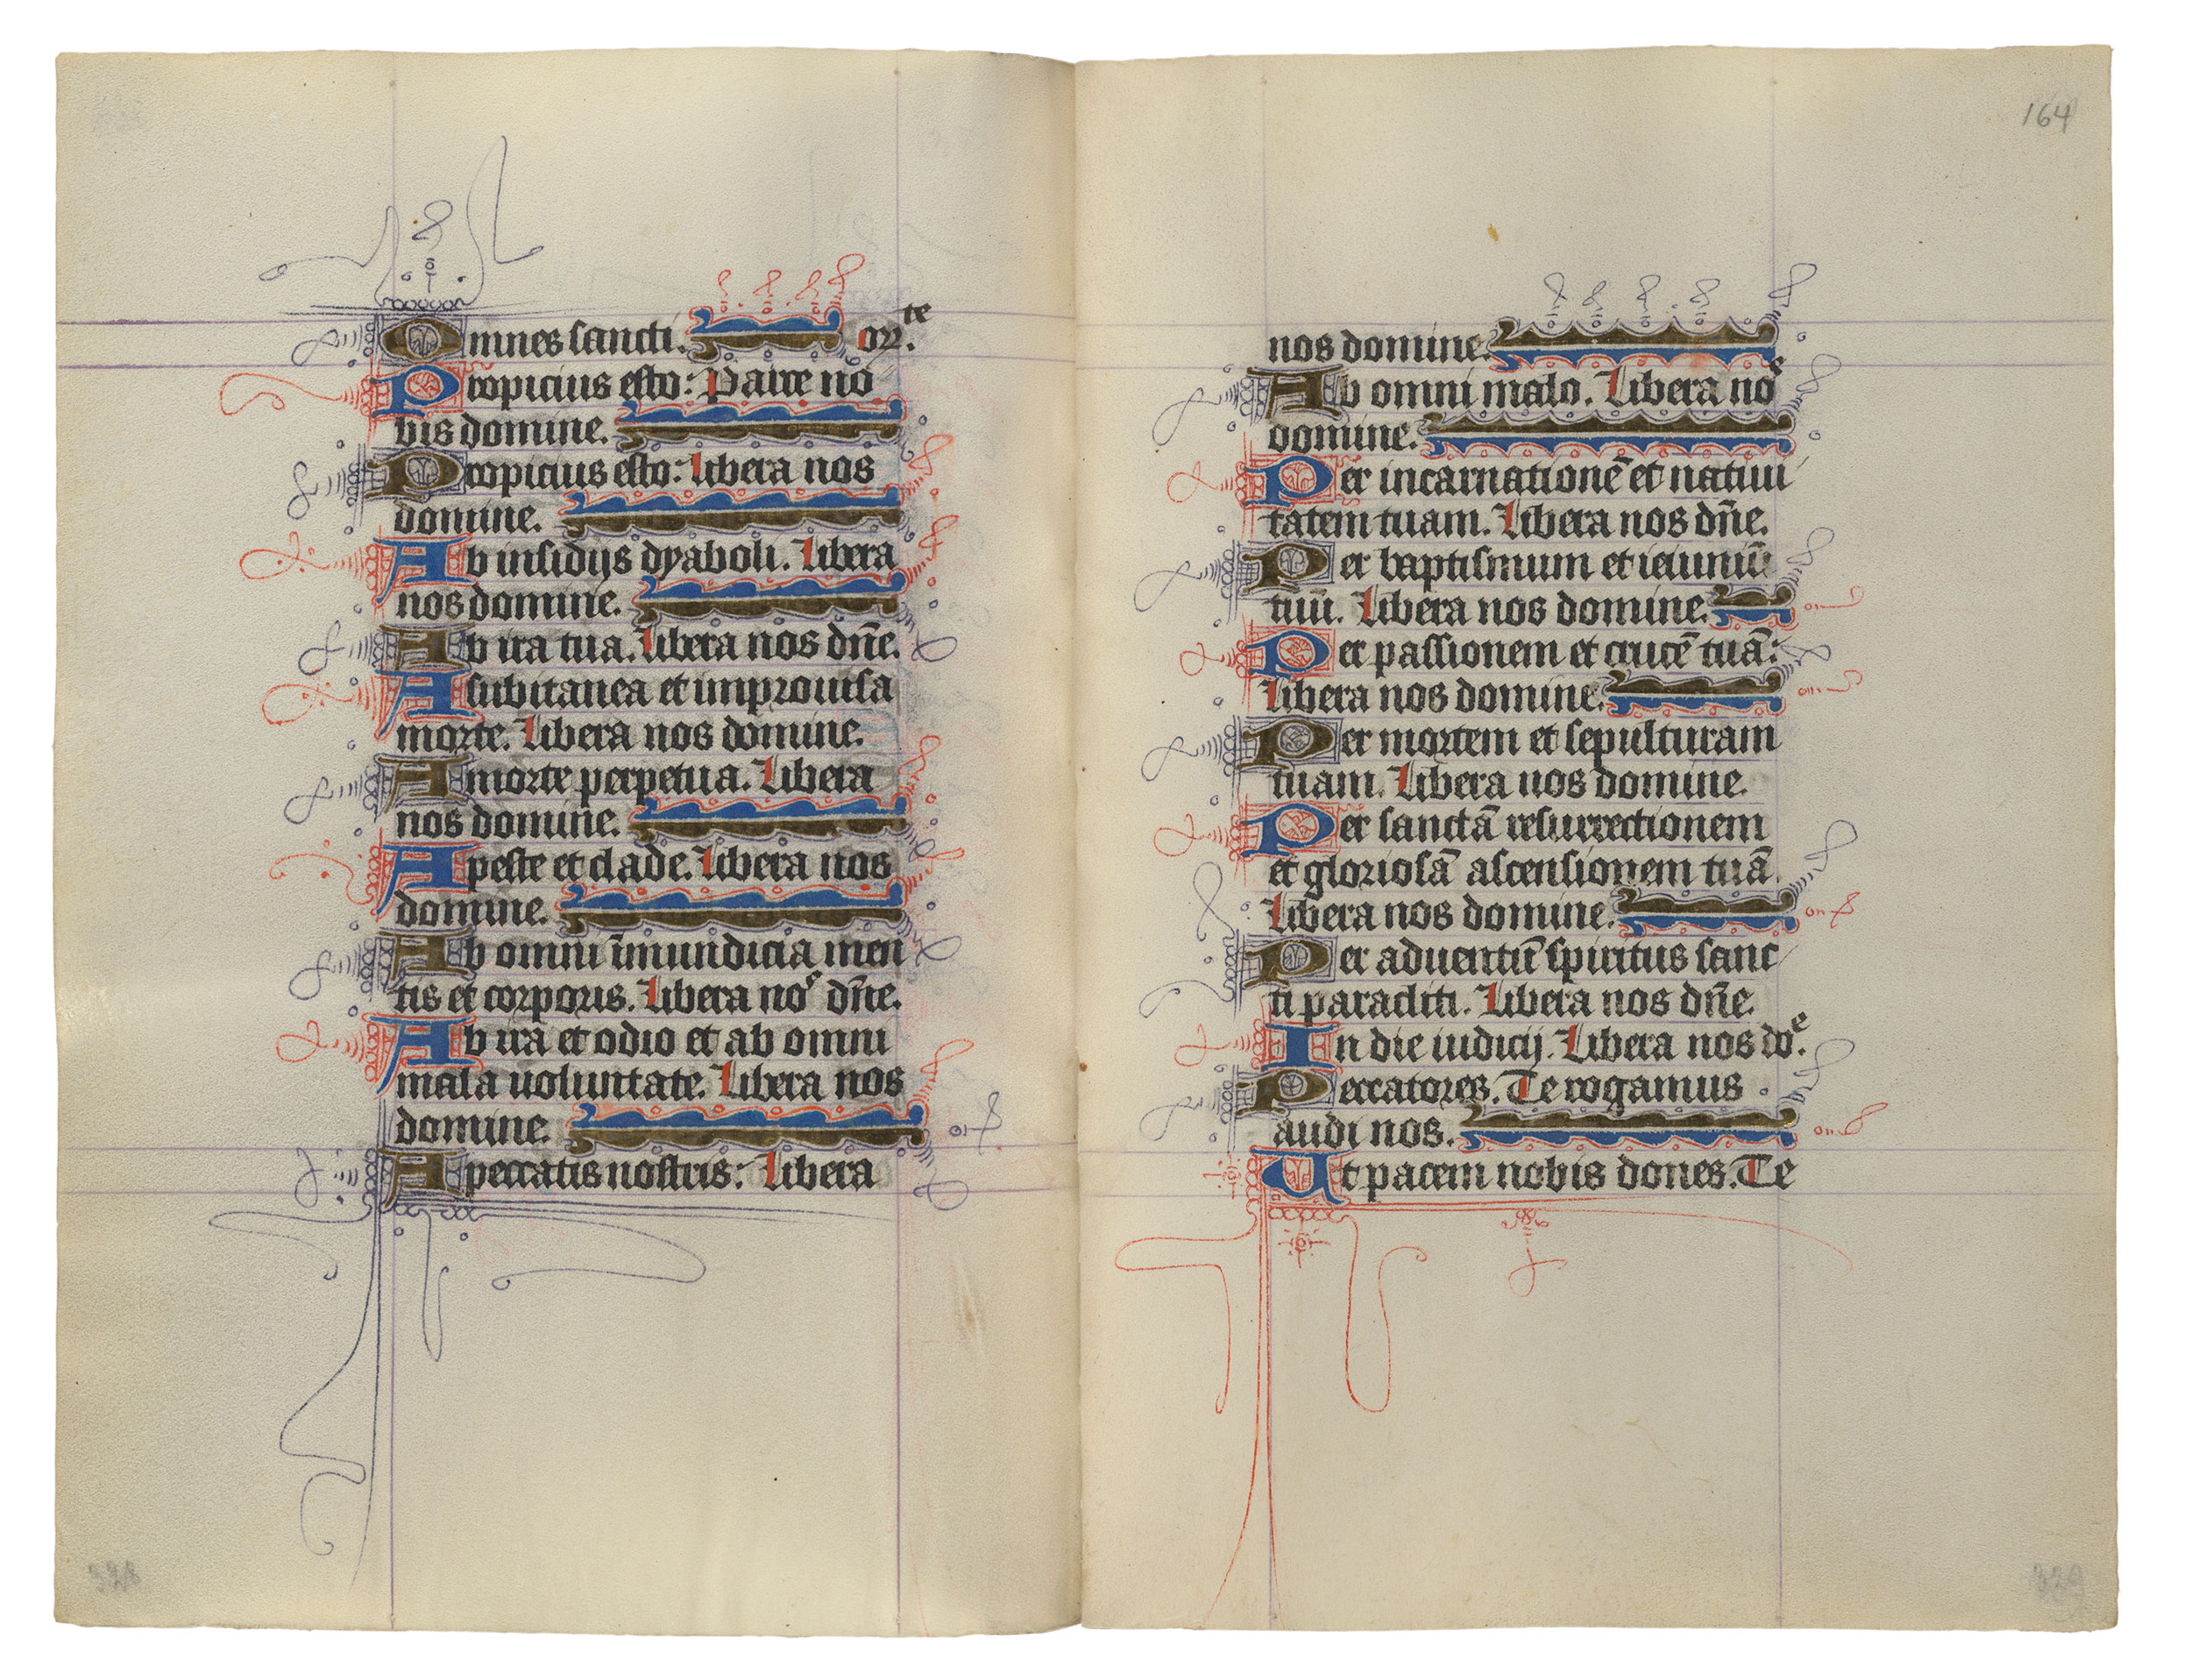 Omnes sancti. or̄te.
Propicius esto: Parce no
bis domine.
Propicius esto: Libera nos
domine.
Ab insidijs dyaboli. Libera
nos domine.
Ab ira tua. Libera nos dn̄e.
A subitanea et improuisa
morte. Libera nos domine.
A morte perpetua. Libera
nos domine.
A peste et clade. Libera nos
domine.
Ab omni īmundicia men
tis et corporis. Libera noˢ dn̄e.
Ab ira et odio et ab omni
mala uoluntate. Libera nos
domine.
A peccatis nostris: Libera
164
nos domine.
Ab omni malo. Libera noˢ
domine.
Per incarnationē et natiui
tatem tuam. Libera nos dn̄e.
Per baptismum et ieiuniū
tuū. Libera nos domine.
Per passionem et crucē tuā:
Libera nos domine.
Per mortem et sepulturam
tuam. Libera nos domine.
Per sanctā resurrectionem
et gloriosā ascensionem tuā.
Libera nos domine.
Per aduentū spiritus sanc
ti paracliti. Libera nos dn̄e.
In die iudicij. Libera nos doᵉ.
Peccatores. Te rogamus
audi nos.
Ut pacem nobis dones. Te
328
329